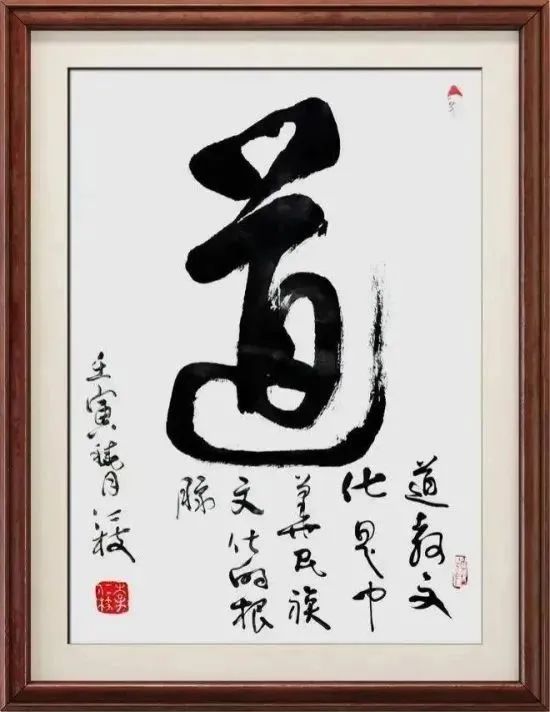 道
道教文
化是中
華民族
文化的根
脉
壬寅 月